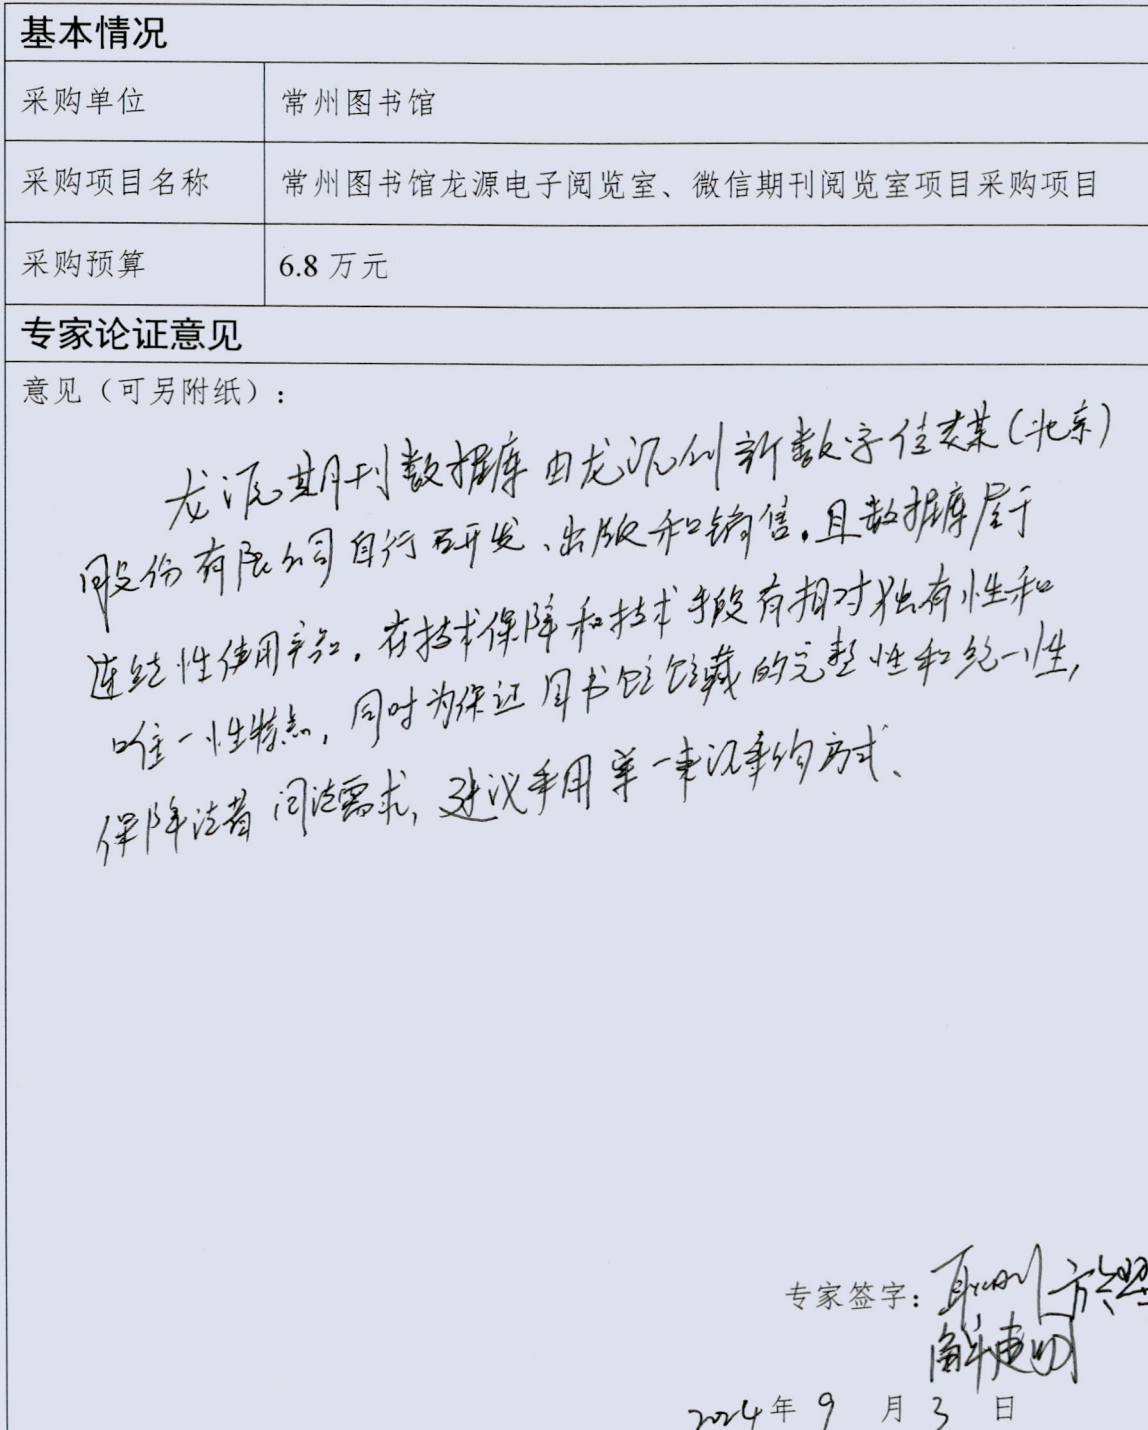 基本情况
采购单位 常州图书馆
采购项目名称 常州图书馆龙源电子阅览室、微信期刊阅览室项目采购项目
采购预算 6.8 万元
专家论证意见
意见（可另附纸）：
龙源期刊数据库由龙源创新数字传媒（北京）
股份有限公司自行研发、出版和销售。且数据库属于
连续性使用产品，在技术保障和技术手段有相对独有性和
唯一性特点，同时为保证图书馆馆藏的完整性和统一性，
保障读者阅读需求，建议采用单一来源采购方式、
专家签字：
解建明
2024年 9 月 3 日